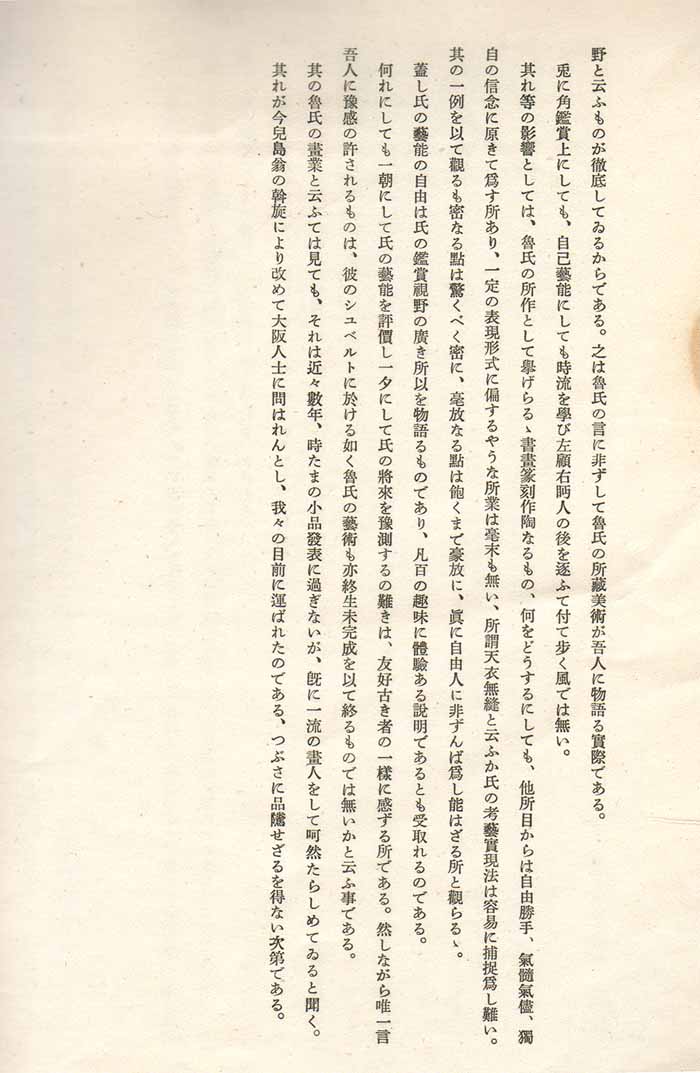 野と云ふものが徹底してゐるからである。之は魯氏の言に非ずして魯氏の所藏美術が吾人に物語る實際である。
兎に角鑑賞上にしても、自己藝能にしても時流を學び左顧右眄人の後を逐ふて付て步く風では無い。
其れ等の影響としては、魯氏の所作として擧げらるゝ書畫篆刻作陶なるもの、何をどうするにしても、他所目からは自由勝手、氣髓氣儘、獨
自の信念に原きて爲す所あり、一定の表現形式に偏するやうな所業は毫末も無い、所謂天衣無縫と云ふか氏の考藝實現法は容易に捕捉爲し難い。
其の一例を以て觀るも密なる點は驚くべく密に、毫放なる點は飽くまで豪放に、眞に自由人に非ずんば爲し能はざる所と觀らるゝ。
蓋し氏の藝能の自由は氏の鑑賞視野の廣き所以を物語るものであり、凡百の趣味に體驗ある說明であるとも受取れるのである。
何れにしても一朝にして氏の藝能を評價し一夕にして氏の將來を豫測するの難きは、友好古き者の一樣に感ずる所である。然しながら唯一言
吾人に豫感の許されるものは、彼のシュベルトに於ける如く魯氏の藝術も亦終生未完成を以て終るものでは無いかと云ふ事である。
其の魯氏の畫業と云ふては見ても、それは近々數年、時たまの小品發表に過ぎないが、旣に一流の畫人をして呵然たらしめてゐると聞く。
其れが今兒島翁の斡旋により改めて大阪人士に問はれんとし、我々の目前に運ばれたのである、つぶさに品隲せざるを得ない次第である。